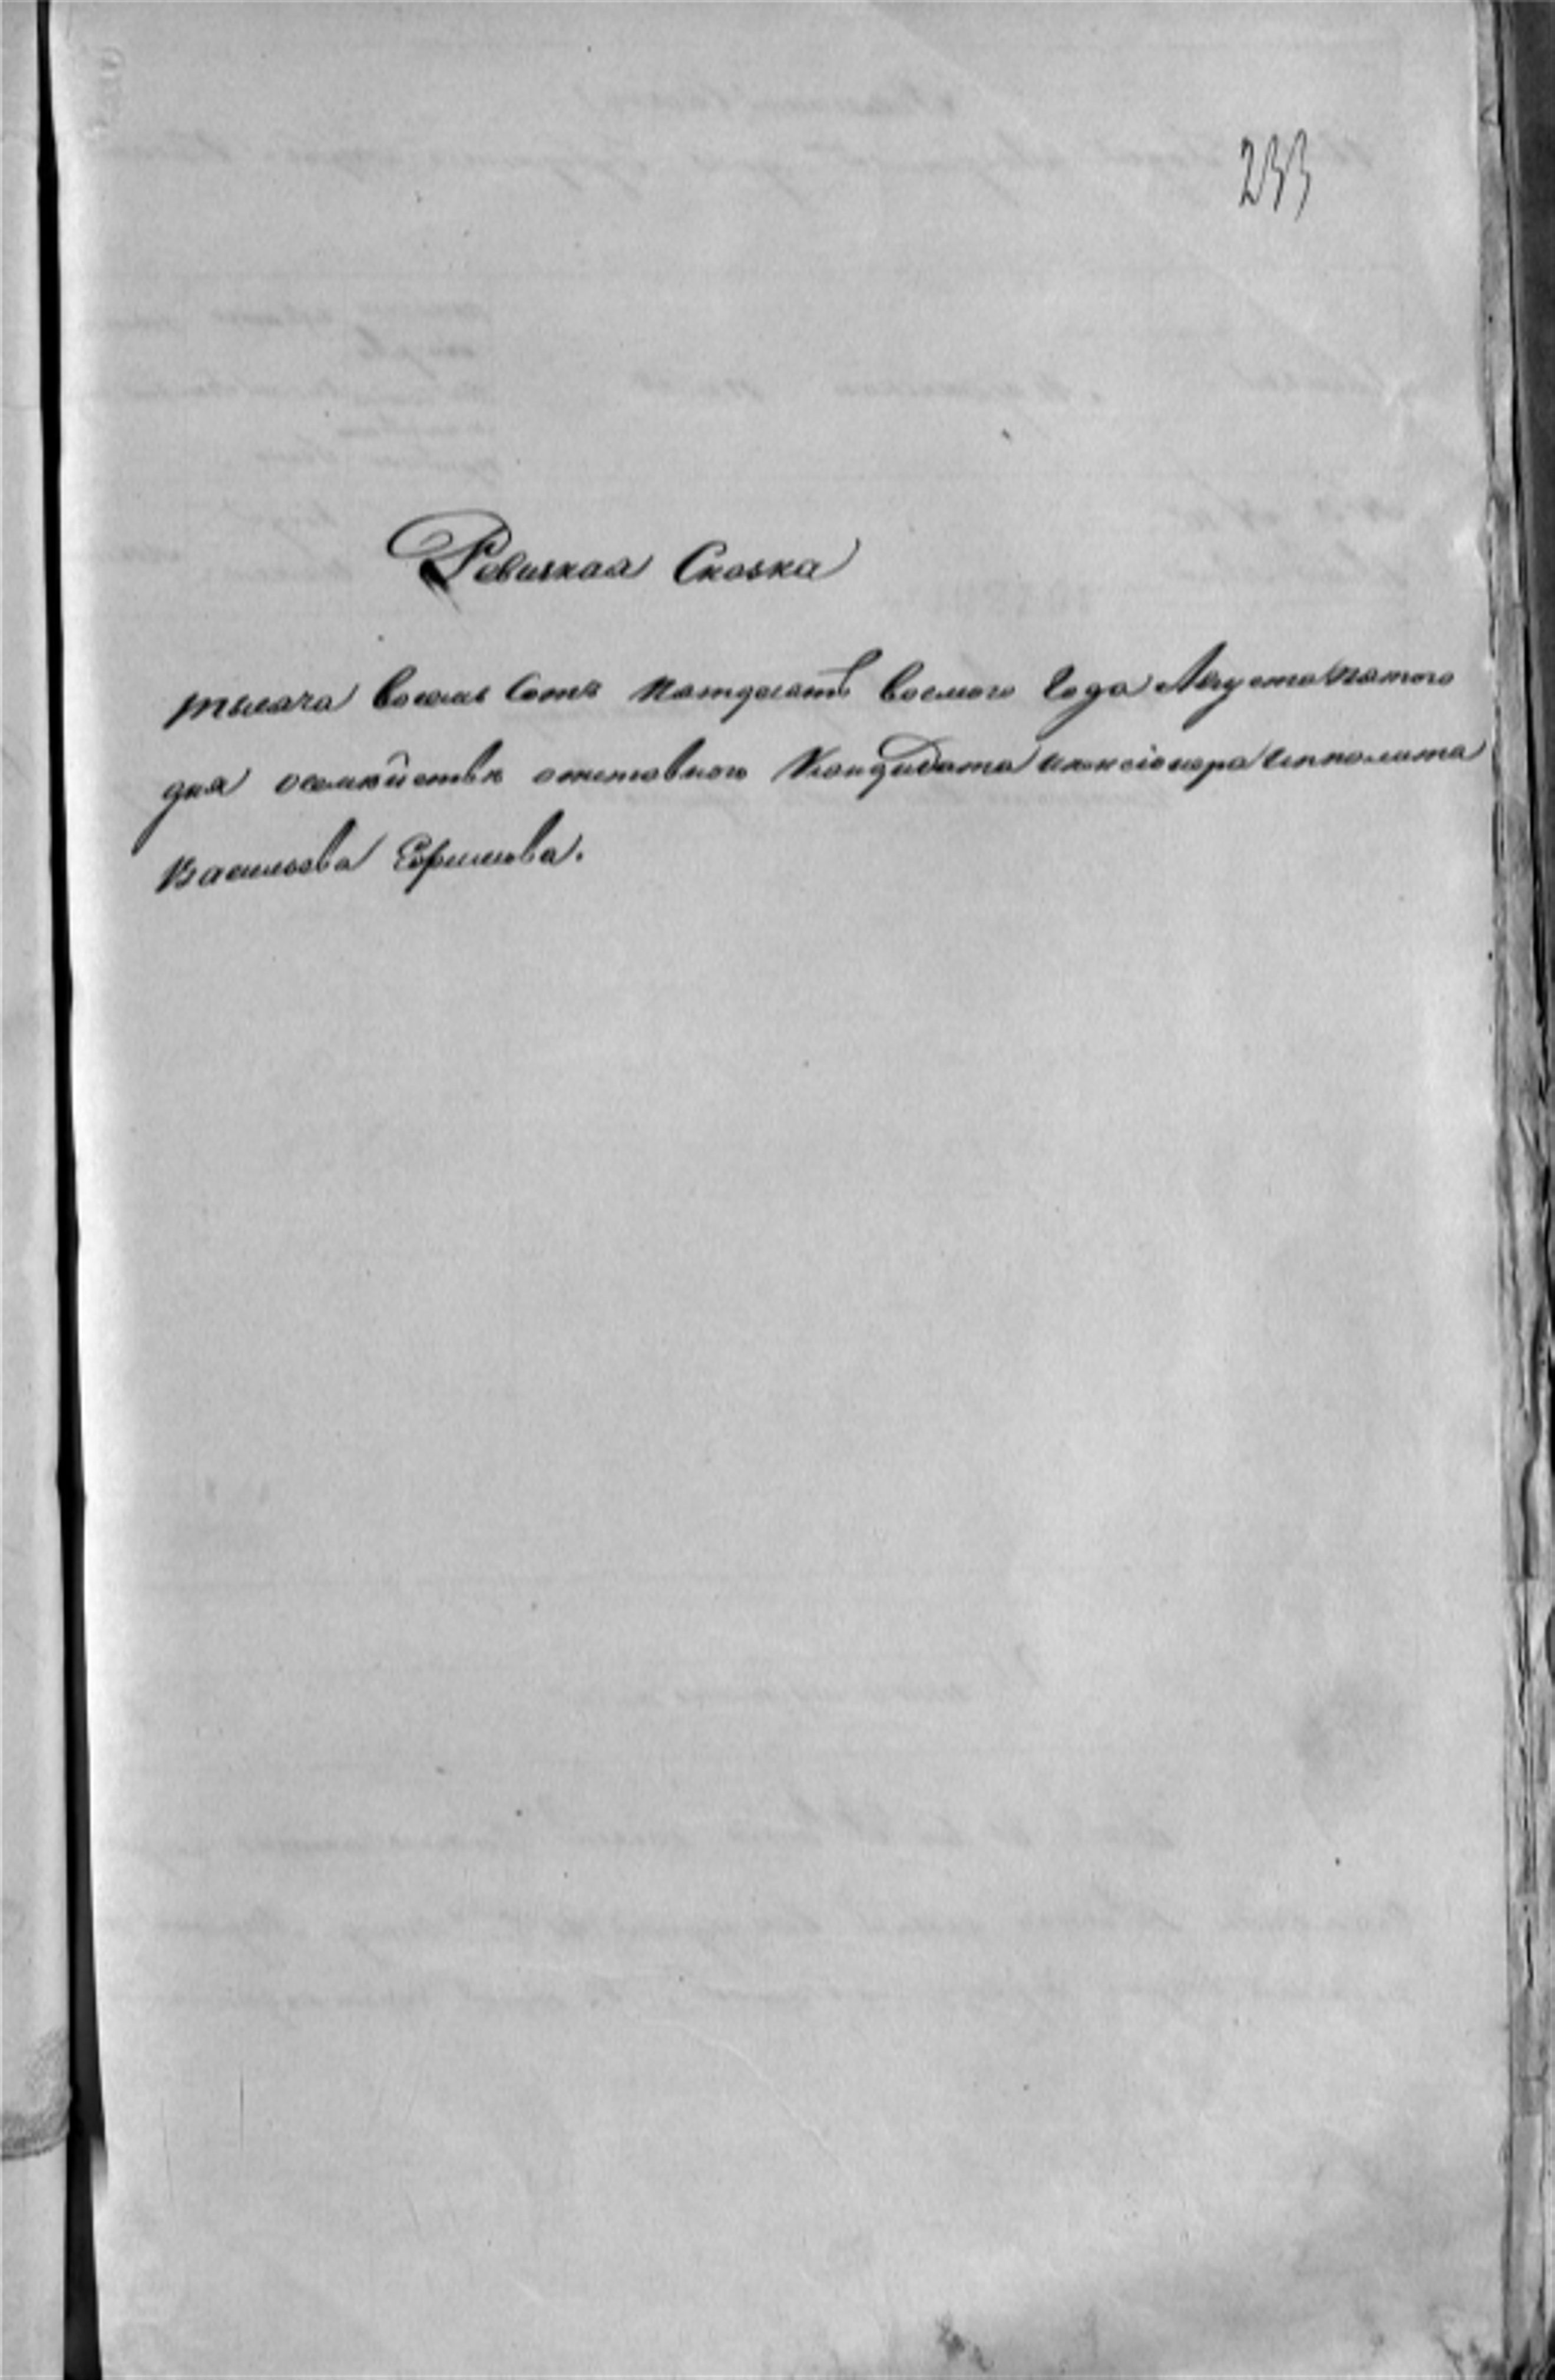 233
Ревизкая Сказка
тысяча восемь сотъ пятдесятъ восмого Года Августа пятого
дня осемействѣ отставного Кандидата Ипполита
Васильева Ефимова.